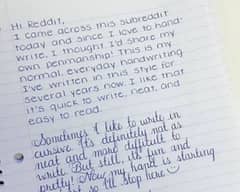 Hi Reddit,
I came across this subreddit
today and since I love to hand-
write, I thought I'd share my
own penmanship! This is my
normal, everyday handwriting.
I've written in this style for
several years now. I like that
it's quick to write, neat, and
easy to read.
Sometimes I like to write in
cursive. It's definitely not as
neat and more difficult to
write. But still, it's fun and
pretty! Now my hand is starting
so I'll stop here